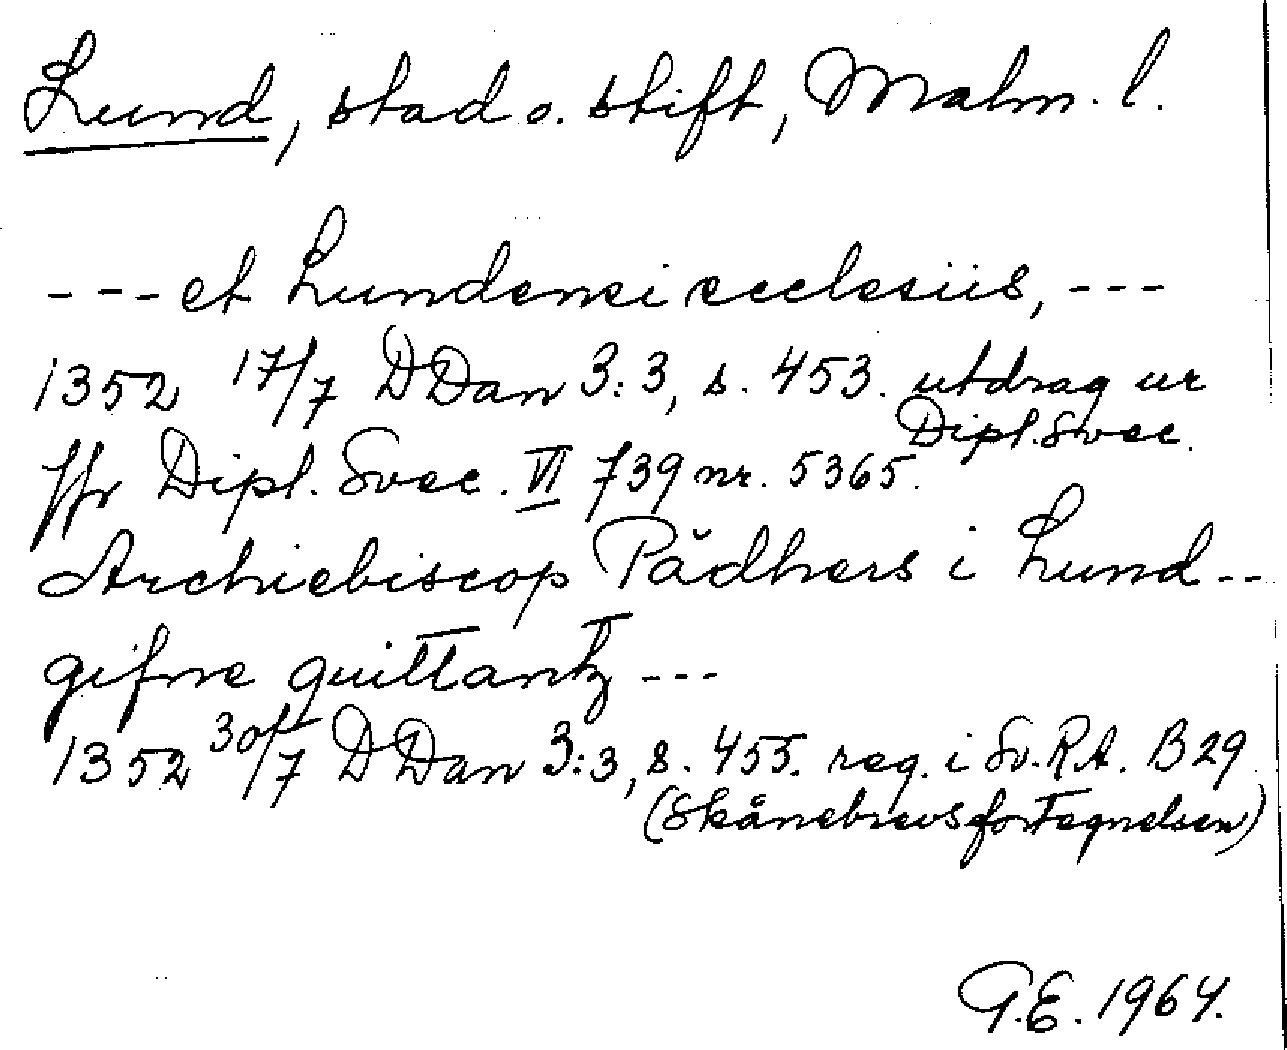 Lund, stad o. stift, Malm. l.
--- et Lundensi ecclesiis, ---
1352 17/7 DDan 3:3, s. 453. utdrag ur
Dipl. Svec.
Jfr Dipl. Svec. VI 739 nr. 5365.
Archiebiscop Pädhers i Lund --
gifne quittantz ---
1352 30/7 DDan 3:3, s. 455. reg. i Sv. RA. B 29
(Skånebrevsfortegnelsen)
G.E. 1964.